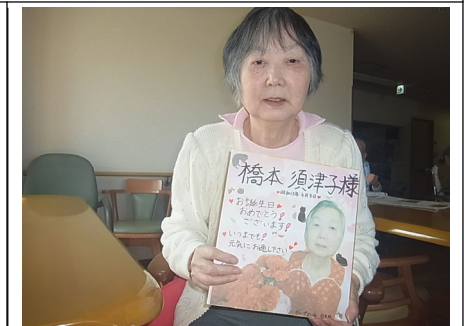 橋本 須津子様
お誕生日
おめでとう
ございます
いつまでも
元気にお過し下さい